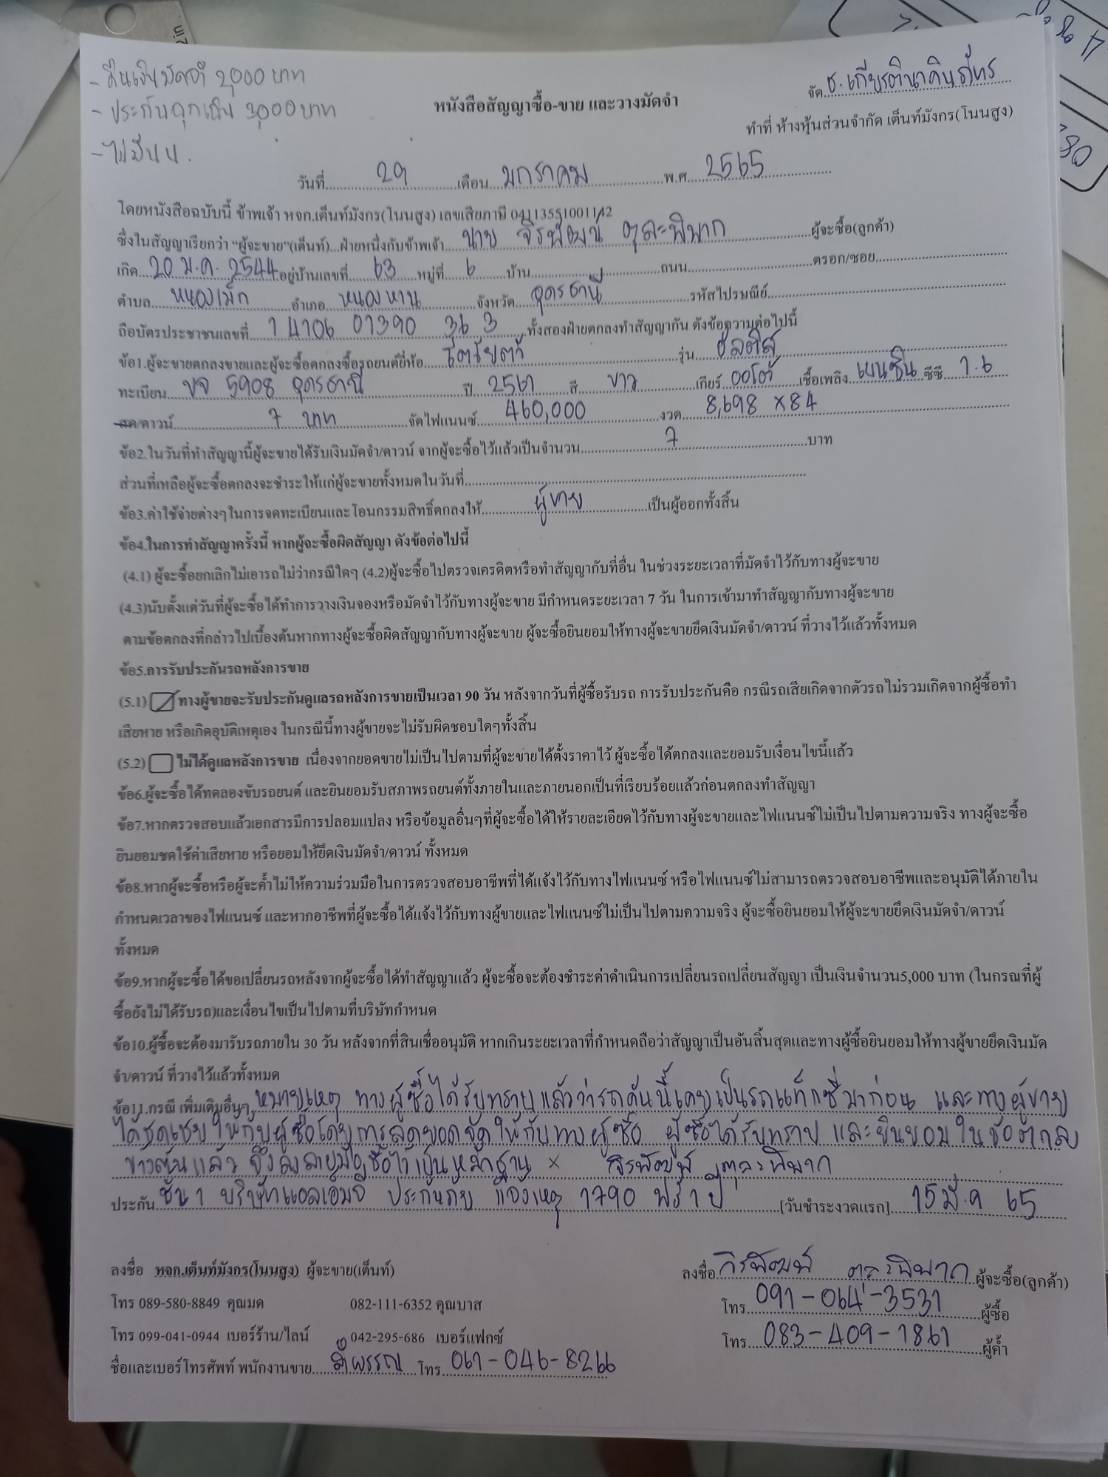 - คืนเงินมัดจำ 2,000 บาท
- ประกันฉุกเฉิน 3,000 บาท
- ไม่มีบน.
จัด ธ.เกียรตินาคินภัทร
หนังสือสัญญาซื้อ-ขาย และวางมัดจำ
ทำที่ ห้างหุ้นส่วนจำกัด เต็นท์มังกร(โนนสูง)
วันที่ 29 เดือน มกราคม พ.ศ. 2565
โดยหนังสือฉบับนี้ ข้าพเจ้า หจก.เต็นท์มังกร(โนนสูง) เลขเสียภาษี 0413551001142
ซึ่งในสัญญาเรียกว่า "ผู้จะขาย"(เต็นท์)...ฝ่ายหนึ่งกับข้าพเจ้า นาย จิรพัฒน์ ตุละพิพาก ผู้จะซื้อ(ลูกค้า)
เกิด 20 ม.ค. 2544 อยู่บ้านเลขที่ 63 หมู่ที่ 6 บ้าน ถนน ตรอก/ซอย
ตำบล หนองเม็ก อำเภอ หนองหาน จังหวัด อุดรธานี รหัสไปรษณีย์
ถือบัตรประชาชนเลขที่ 1 4106 01390 36 3 ทั้งสองฝ่ายตกลงทำสัญญากัน ดังข้อความต่อไปนี้
ข้อ1.ผู้จะขายตกลงขายและผู้จะซื้อตกลงซื้อรถยนต์ยี่ห้อ โตโยต้า รุ่น อัลติส
ทะเบียน ขจ 5908 อุดรธานี ปี 2561 สี ขาว เกียร์ ออโต้ เชื้อเพลิง เบนซิน ซีซี 1.6
สด/ดาวน์ 7 บาท จัดไฟแนนซ์ 460,000 งวด 8,698 x 84
ข้อ2.ในวันที่ทำสัญญานี้ผู้จะขายได้รับเงินมัดจำ/ดาวน์ จากผู้จะซื้อไว้แล้วเป็นจำนวน 7 บาท
ส่วนที่เหลือผู้จะซื้อตกลงจะชำระให้แก่ผู้จะขายทั้งหมดในวันที่
ข้อ3.ค่าใช้จ่ายต่างๆในการจดทะเบียนและโอนกรรมสิทธิ์ตกลงให้ ผู้ขาย เป็นผู้ออกทั้งสิ้น
ข้อ4.ในการทำสัญญาครั้งนี้ หากผู้จะซื้อผิดสัญญา ดังข้อต่อไปนี้
(4.1) ผู้จะซื้อยกเลิกไม่เอารถไม่ว่ากรณีใดๆ (4.2)ผู้จะซื้อไปตรวจเครดิตหรือทำสัญญากับที่อื่น ในช่วงระยะเวลาที่มัดจำไว้กับทางผู้จะขาย
(4.3)นับตั้งแต่วันที่ผู้จะซื้อได้ทำการวางเงินจองหรือมัดจำไว้กับทางผู้จะขาย มีกำหนดระยะเวลา 7 วัน ในการเข้ามาทำสัญญากับทางผู้จะขาย
ตามข้อตกลงที่กล่าวไปเบื้องต้นหากทางผู้จะซื้อผิดสัญญากับทางผู้จะขาย ผู้จะซื้อยินยอมให้ทางผู้จะขายยึดเงินมัดจำ/ดาวน์ ที่วางไว้แล้วทั้งหมด
ข้อ5.การรับประกันรถหลังการขาย
(5.1) ทางผู้ขายจะรับประกันดูแลรถหลังการขายเป็นเวลา 90 วัน หลังจากวันที่ผู้ซื้อรับรถ การรับประกันคือ กรณีรถเสียเกิดจากตัวรถไม่รวมเกิดจากผู้ซื้อทำ
เสียหาย หรือเกิดอุบัติเหตุเอง ในกรณีนี้ทางผู้ขายจะไม่รับผิดชอบใดๆทั้งสิ้น
(5.2) ไม่ได้ดูแลหลังการขาย เนื่องจากยอดขายไม่เป็นไปตามที่ผู้จะขายได้ตั้งราคาไว้ ผู้จะซื้อได้ตกลงและยอมรับเงื่อนไขนี้แล้ว
ข้อ6.ผู้จะซื้อได้ทดลองขับรถยนต์ และยินยอมรับสภาพรถยนต์ทั้งภายในและภายนอกเป็นที่เรียบร้อยแล้วก่อนตกลงทำสัญญา
ข้อ7.หากตรวจสอบแล้วเอกสารมีการปลอมแปลง หรือข้อมูลอื่นๆที่ผู้จะซื้อได้ให้รายละเอียดไว้กับทางผู้จะขายและไฟแนนซ์ไม่เป็นไปตามความจริง ทางผู้จะซื้อ
ยินยอมชดใช้ค่าเสียหาย หรือยอมให้ยึดเงินมัดจำ/ดาวน์ ทั้งหมด
ข้อ8.หากผู้จะซื้อหรือผู้จะค้ำไม่ให้ความร่วมมือในการตรวจสอบอาชีพที่ได้แจ้งไว้กับทางไฟแนนซ์ หรือไฟแนนซ์ไม่สามารถตรวจสอบอาชีพและอนุมัติได้ภายใน
กำหนดเวลาของไฟแนนซ์ และหากอาชีพที่ผู้จะซื้อได้แจ้งไว้กับทางผู้ขายและไฟแนนซ์ไม่เป็นไปตามความจริง ผู้จะซื้อยินยอมให้ผู้จะขายยึดเงินมัดจำ/ดาวน์
ทั้งหมด
ข้อ9.หากผู้จะซื้อได้ขอเปลี่ยนรถหลังจากผู้จะซื้อได้ทำสัญญาแล้ว ผู้จะซื้อจะต้องชำระค่าดำเนินการเปลี่ยนรถเปลี่ยนสัญญา เป็นเงินจำนวน5,000 บาท (ในกรณที่ผู้
ซื้อยังไม่ได้รับรถ)และเงื่อนไขเป็นไปตามที่บริษัทกำหนด
ข้อ10.ผู้ซื้อจะต้องมารับรถภายใน 30 วัน หลังจากที่สินเชื่ออนุมัติ หากเกินระยะเวลาที่กำหนดถือว่าสัญญาเป็นอันสิ้นสุดและทางผู้ซื้อยินยอมให้ทางผู้ขายยึดเงินมัด
จำ/ดาวน์ ที่วางไว้แล้วทั้งหมด
ข้อ11.กรณี เพิ่มเติมอื่นๆ หมายเหตุ ทางผู้ซื้อได้รับทราบแล้วว่ารถคันนี้เคยเป็นรถแท็กซี่มาก่อน และทางผู้ขาย
ได้ชดเชยให้กับผู้ซื้อโดยการลดยอดจัดให้กับทางผู้ซื้อ ผู้ซื้อได้รับทราบ และยินยอมในข้อตกลง
ข้างต้นแล้ว จึงลงลายมือชื่อไว้เป็นหลักฐาน x จิรพัฒน์ ตุละพิพาก
ประกัน ชั้น 1 บริษัทแอลเอ็มจี ประกันภัย แจ้งเหตุ 1790 ฟรี 1 ปี (วันชำระงวดแรก) 15 มี.ค 65
ลงชื่อ หจก.เต็นท์มังกร(โนนสูง) ผู้จะขาย(เต็นท์)
ลงชื่อ จิรพัฒน์ ตุละพิพาก ผู้จะซื้อ(ลูกค้า)
โทร 089-580-8849 คุณมด 082-111-6352 คุณบาส
โทร 091-064-3531 ผู้ซื้อ
โทร 099-041-0944 เบอร์ร้าน/ไลน์ 042-295-686 เบอร์แฟกซ์
โทร 083-409-1861 ผู้ค้ำ
ชื่อและเบอร์โทรศัพท์ พนักงานขาย โทร 061-046-8266